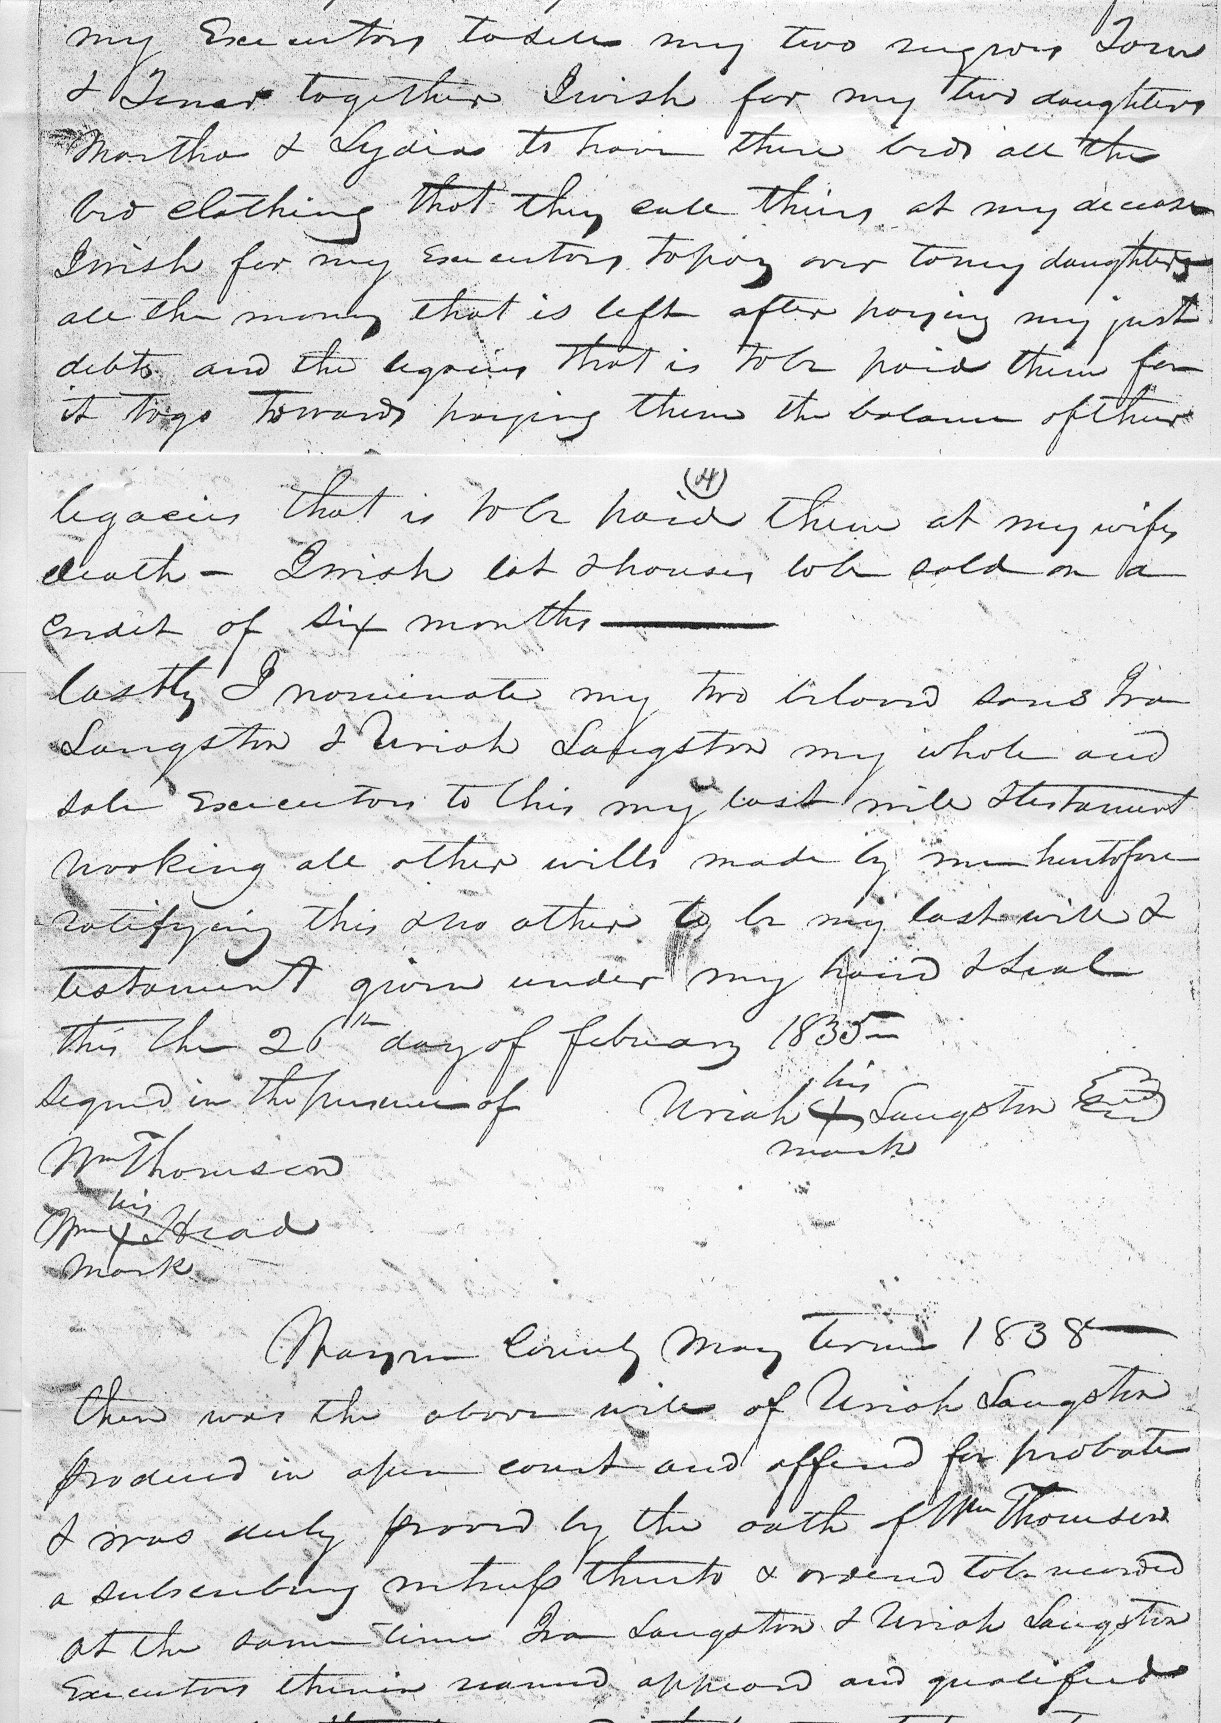 my Executors to sell my two negroes Tom
& Tenar together I wish for my two daughters
Martha & Lydia to have there beds all the
bed clothing that they call theirs at my decease
I wish for my Executors to pay over to my daughters
all the money that is left after paying my just
debts and the legacies that is to be paid them for
it to go towards paying them the balance of their
(4)
legacies that is to be paid them at my wifes
death – I wish lot & houses to be sold on a
credit of six months
lastly I nominate my two beloved sons Ira
Langston & Uriah Langston my whole and
sole Executors to this my last will & testament
all other wills made by me heretofore
ratifying this & no other to be my last will &
testament given under my hand & seal
this the 26th day of february 1835
Signed in the presence of Uriah his X mark Langston Seal
Wm Thomison
Wm his X mark Head
Wayne County May Term 1838
then was the above will of Uriah Langston
produced in open court and offered for probate
& was duly proved by the oath of Wm Thomison
a subscribing witness thereto & ordered to be recorded
at the same time Ira Langston & Uriah Langston
Executors therein named appeard and qualified